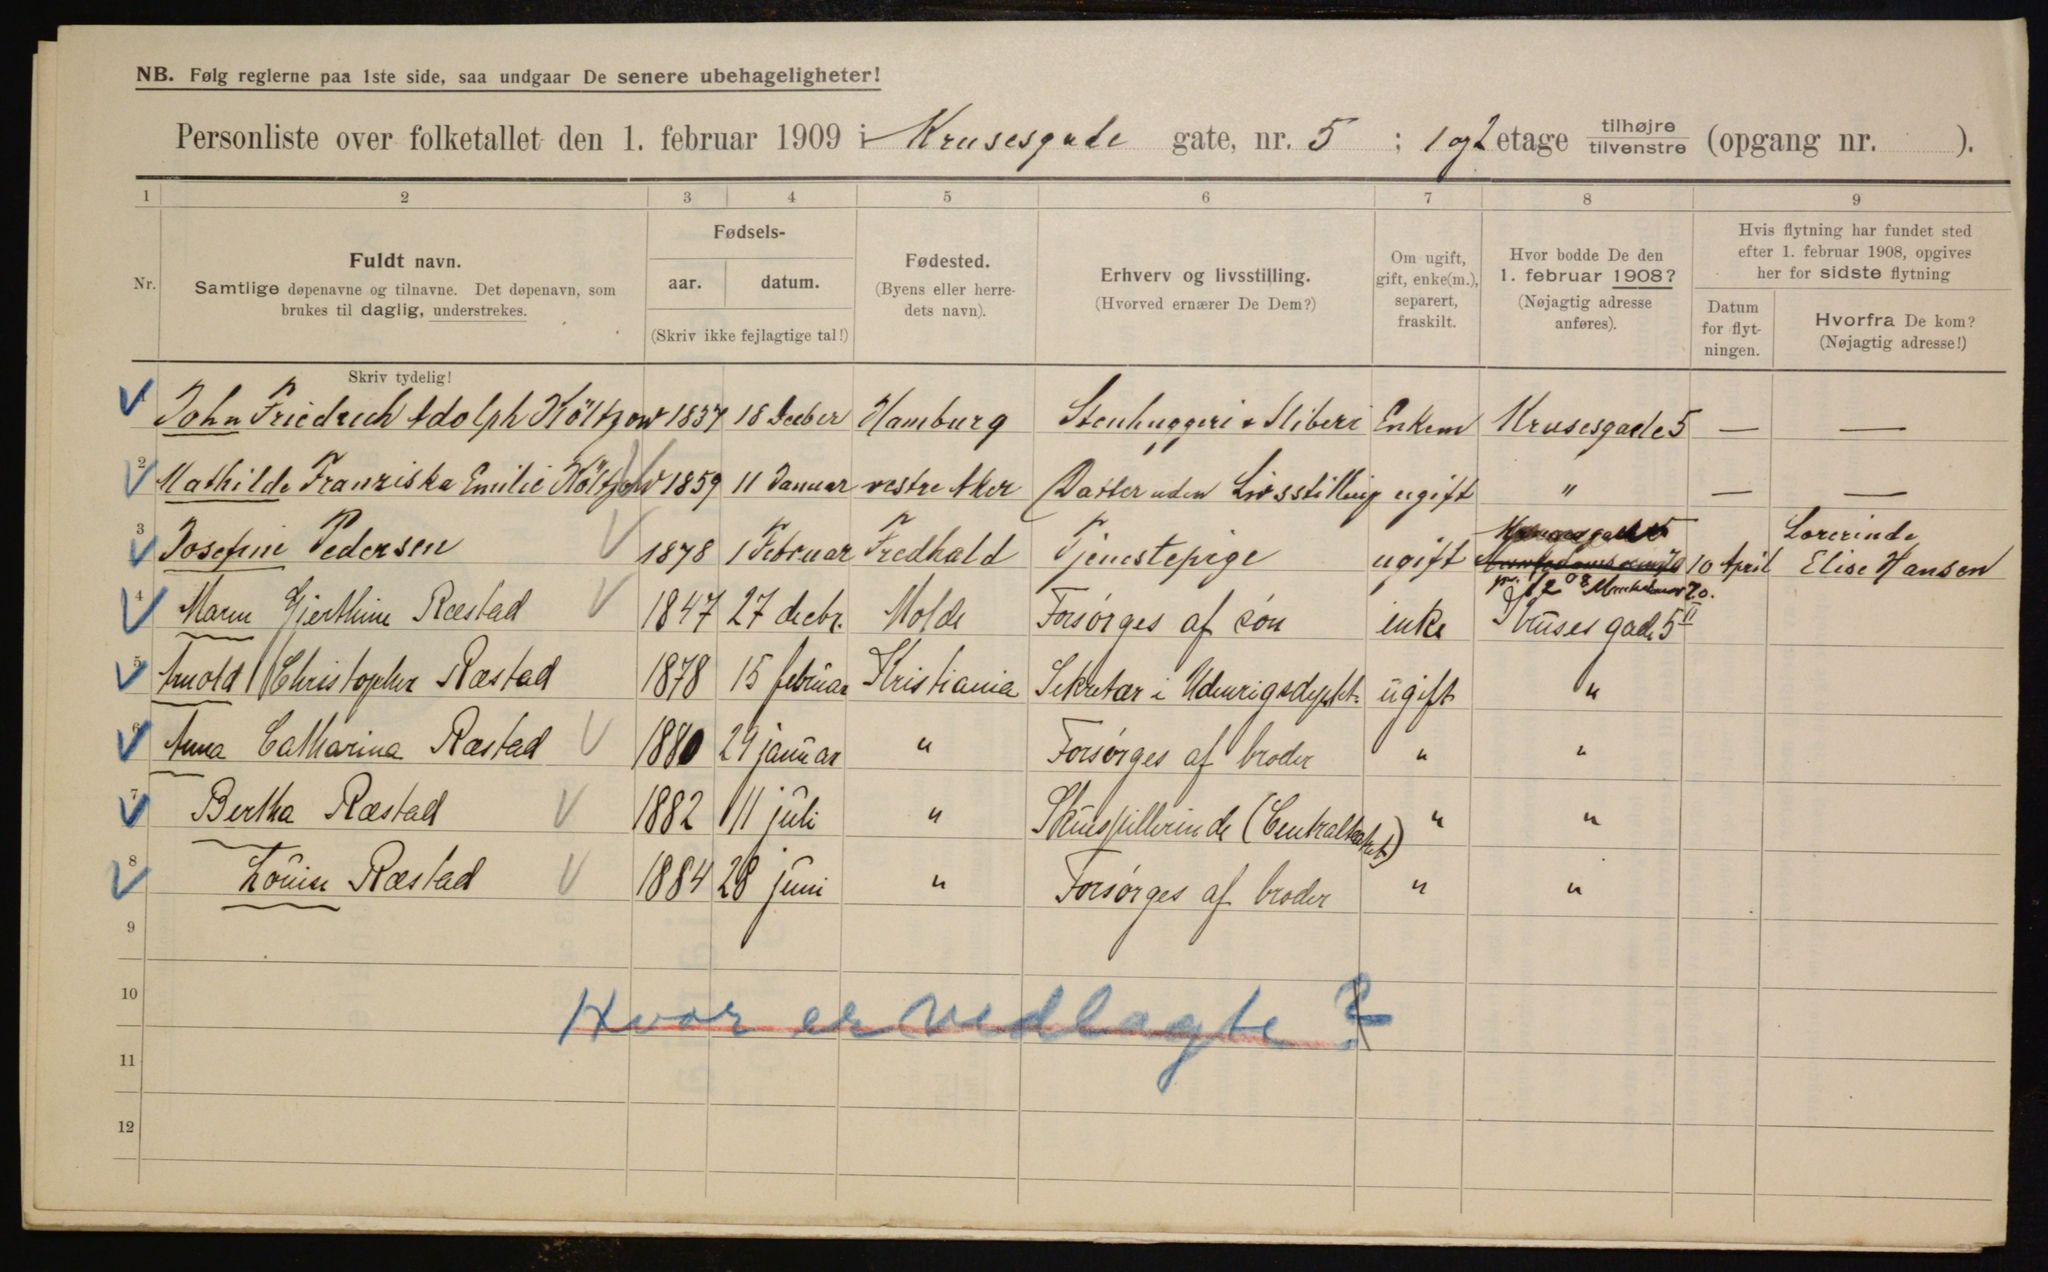 NB. Følg reglerne paa 1ste side, saa undgaar De senere ubehageligheter!
Personliste over folketallet den 1. februar 1909 i Krusesgade gate, nr. 5 ; 1 og 2 etage tilhøjre tilvenstre (opgang nr. ).
1 2 3 4 5 6 7 8 9
Nr.
Fuldt navn.
Samtlige døpenavne og tilnavne. Det døpenavn, som
brukes til daglig, understrekes.
Skriv tydelig!
Fødsels-
aar. datum.
(Skriv ikke fejlagtige tal!)
Fødested.
(Byens eller herre-
dets navn).
Erhverv og livsstilling.
(Hvorved ernærer De Dem?)
Om ugift,
gift, enke(m.),
separert,
fraskilt.
Hvor bodde De den
1. februar 1908?
(Nøjagtig adresse
anføres).
Hvis flytning har fundet sted
efter 1. februar 1908, opgives
her for sidste flytning
Datum
for flyt-
ningen.
Hvorfra De kom?
(Nøjagtig adresse!)
John Friedrich Adolph Höltzow 1837 18 Decber Hamburg Stenhuggeri & Sliberi Enkem Krusesgade 5 — —
2 Mathilde Franziska Emilie Höltzow 1859 11 Januar vestre Aker Datter uden Livsstilling ugift " — —
3 Josefine Pedersen 1878 1 Februar Fredhald Tjenestepige ugift 10 April Lærerinde
Elise Hansen
4 Maren Gjerthine Ræstad 1847 27 decbr. Molde Forsørges af søn enke Kruses gade 5 II
5 Arnold Christopher Ræstad 1878 15 februar Kristiania Sekretær i Udenrigsdeptet. ugift "
6 Anna Catharina Ræstad 1880 29 januar " Forsørges af broder " "
7 Bertha Ræstad 1882 11 juli " Skuespillerinde (Centralteatret) " "
8 Louise Ræstad 1884 28 juni " Forsørges af broder " "
9
10
Hvor er vedlagte ?
11
12